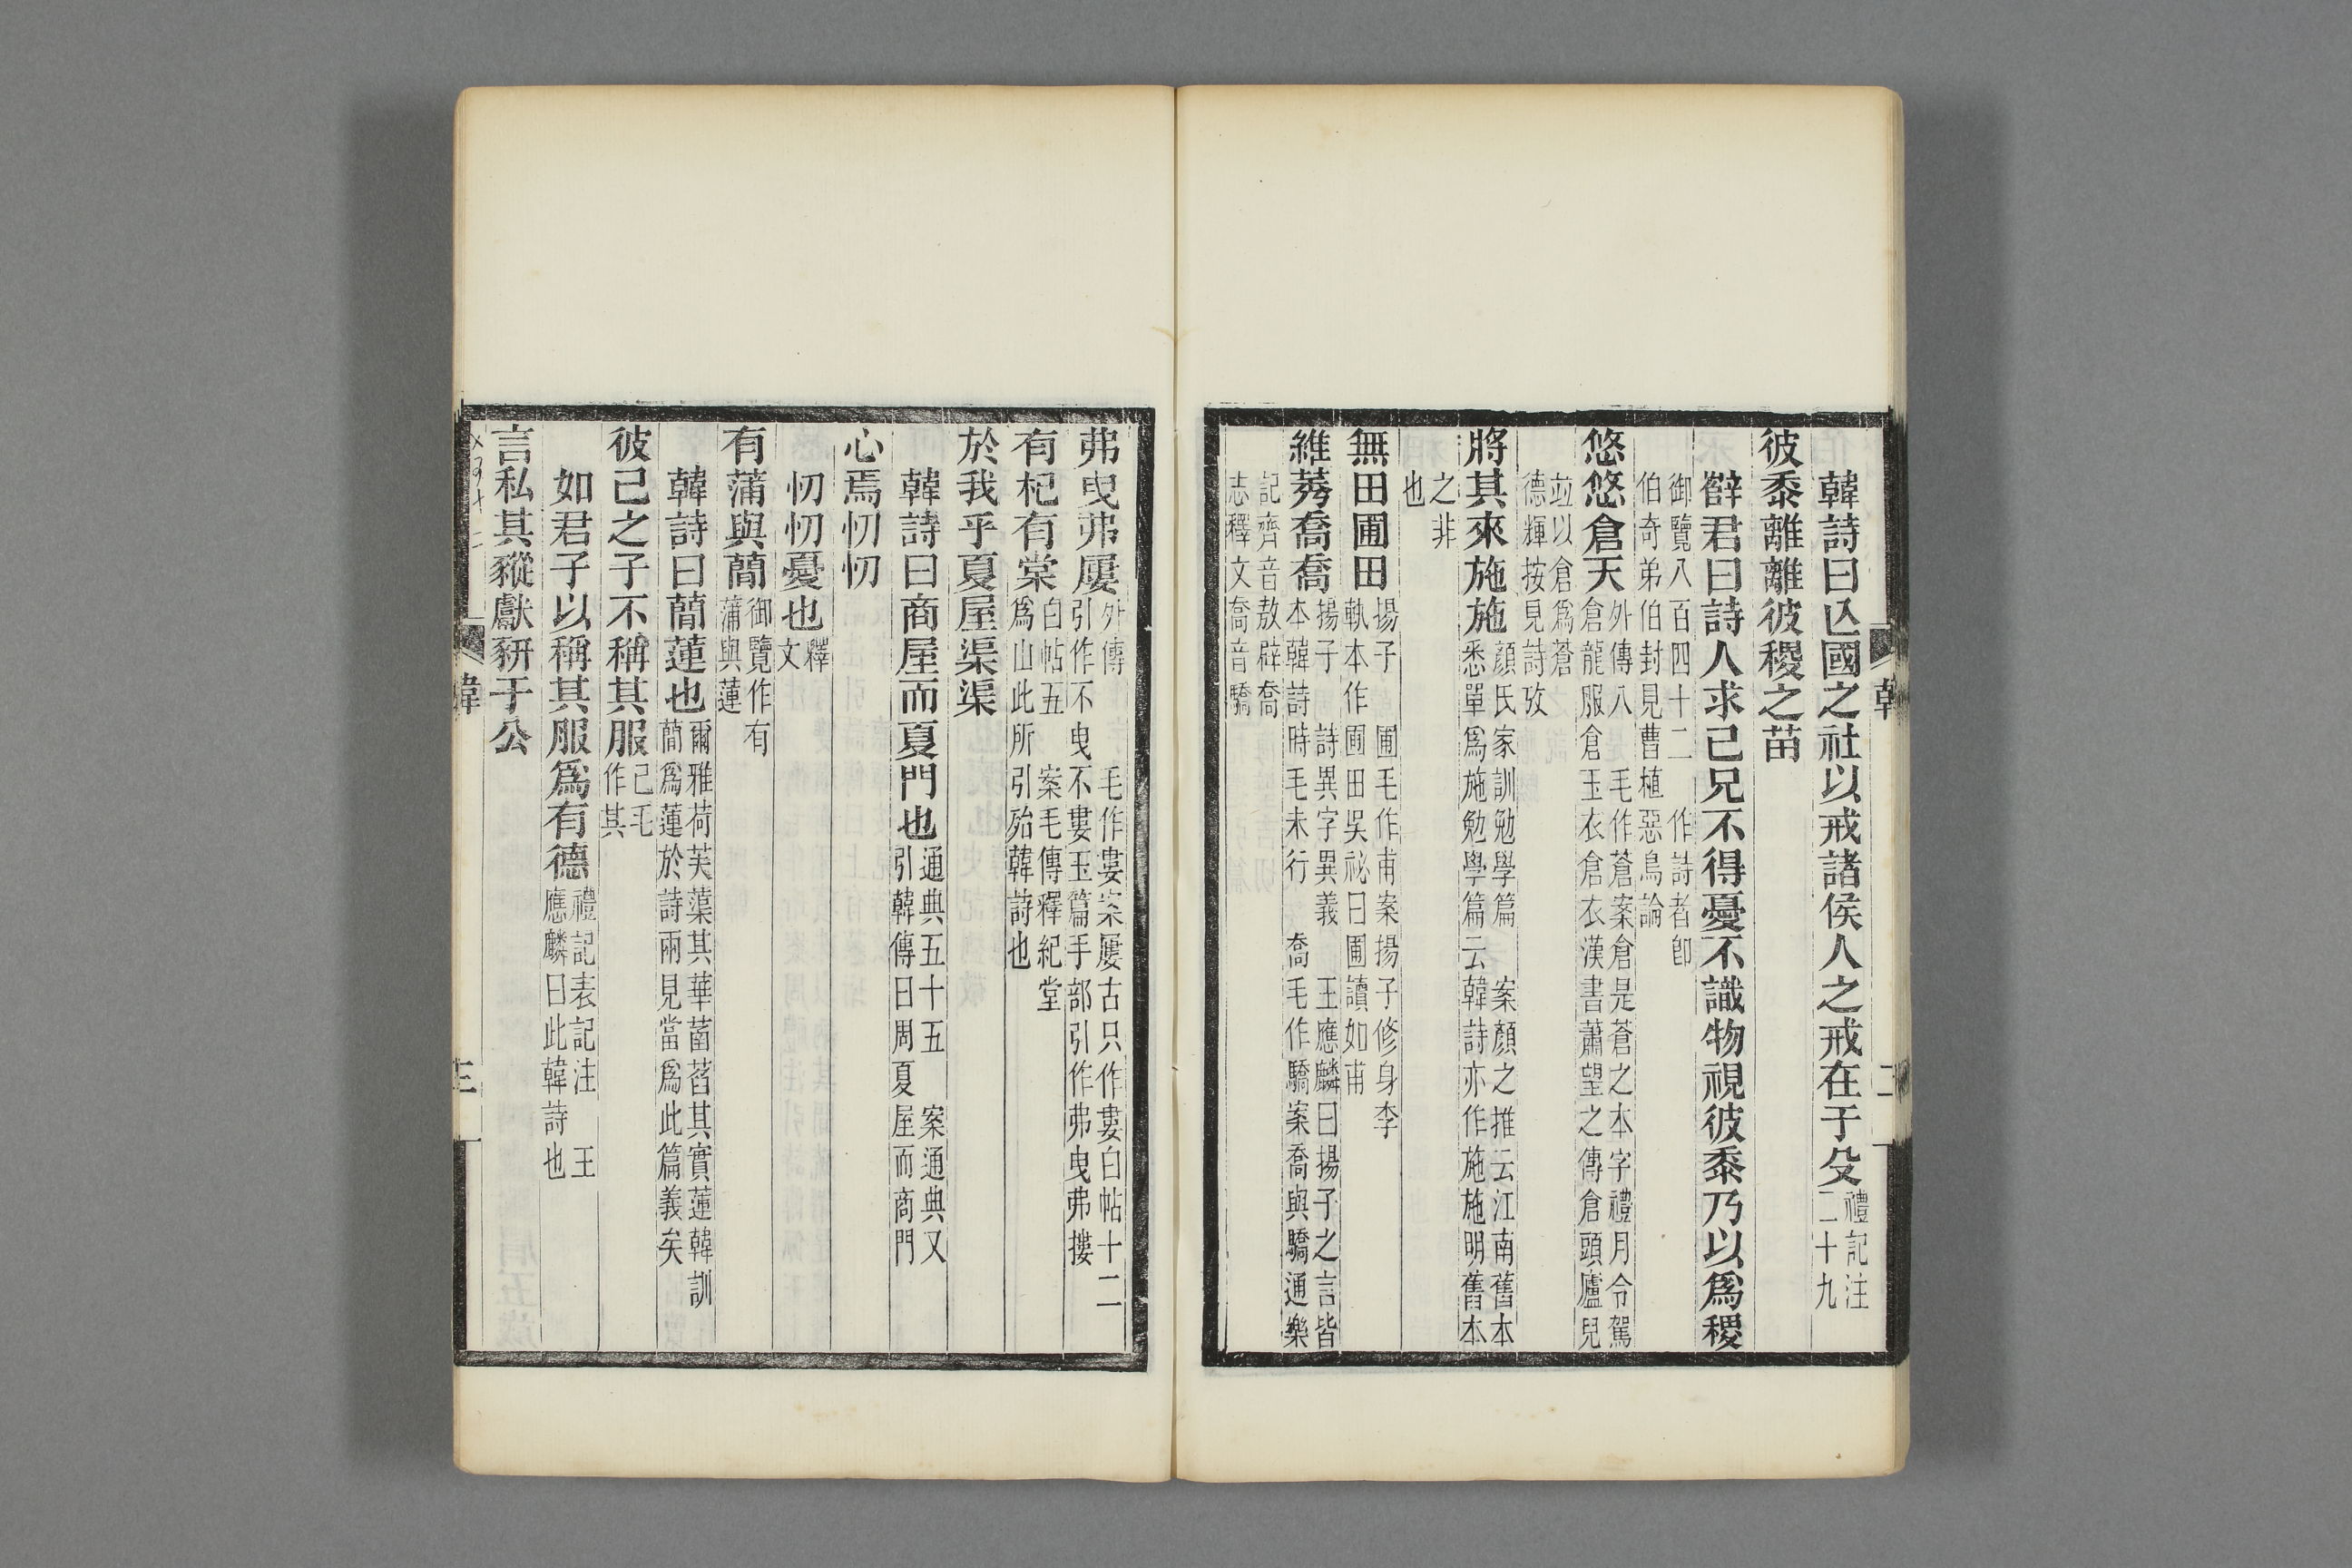 韓詩曰亾國之社以戒諸侯人之戒在于殳禮記注二十九
彼黍離離彼稷之苗
辥君曰詩人求己兄不得憂不識物視彼黍乃以爲稷
御覽八百四十二　作詩者卽伯奇弟伯封見曹植惡鳥論
悠悠倉天外傳八　毛作蒼案倉是蒼之本字禮月令駕倉龍服倉玉衣倉衣漢書蕭望之傳倉頭廬兒
竝以倉爲蒼德輝按見詩攷
將其來施施顔氏家訓勉學篇　案顏之推云江南舊本悉單爲施勉學篇云韓詩亦作施施明舊本
之非也
無田圃田揚子　圃毛作甫案揚子修身李軌本作圃田吳祕曰圃讀如甫
維莠喬喬揚子　詩異字異義　王應麟曰揚子之言皆本韓詩時毛未行　喬毛作驕案喬與驕通樂
記齊音敖辟喬志釋文喬音驕
韓
二
弗曳弗屢外傳　毛作婁案屢古只作婁白帖十二引作不曳不婁玉篇手部引作弗曳弗摟
有杞有棠白帖五　案毛傳釋紀堂爲山此所引殆韓詩也
於我乎夏屋渠渠
韓詩曰商屋而夏門也通典五十五　案通典又引韓傳曰周夏屋而商門
心焉忉忉
忉忉憂也釋文
有蒲與蕑御覽作有蒲與蓮
韓詩曰蕑蓮也爾雅荷芙蕖其華菡萏其實蓮韓訓蕑爲蓮於詩兩見當爲此篇義矣
彼己之子不稱其服己毛作其
如君子以稱其服爲有德禮記表記注　王應麟曰此韓詩也
言私其豵獻豜于公
韓
三